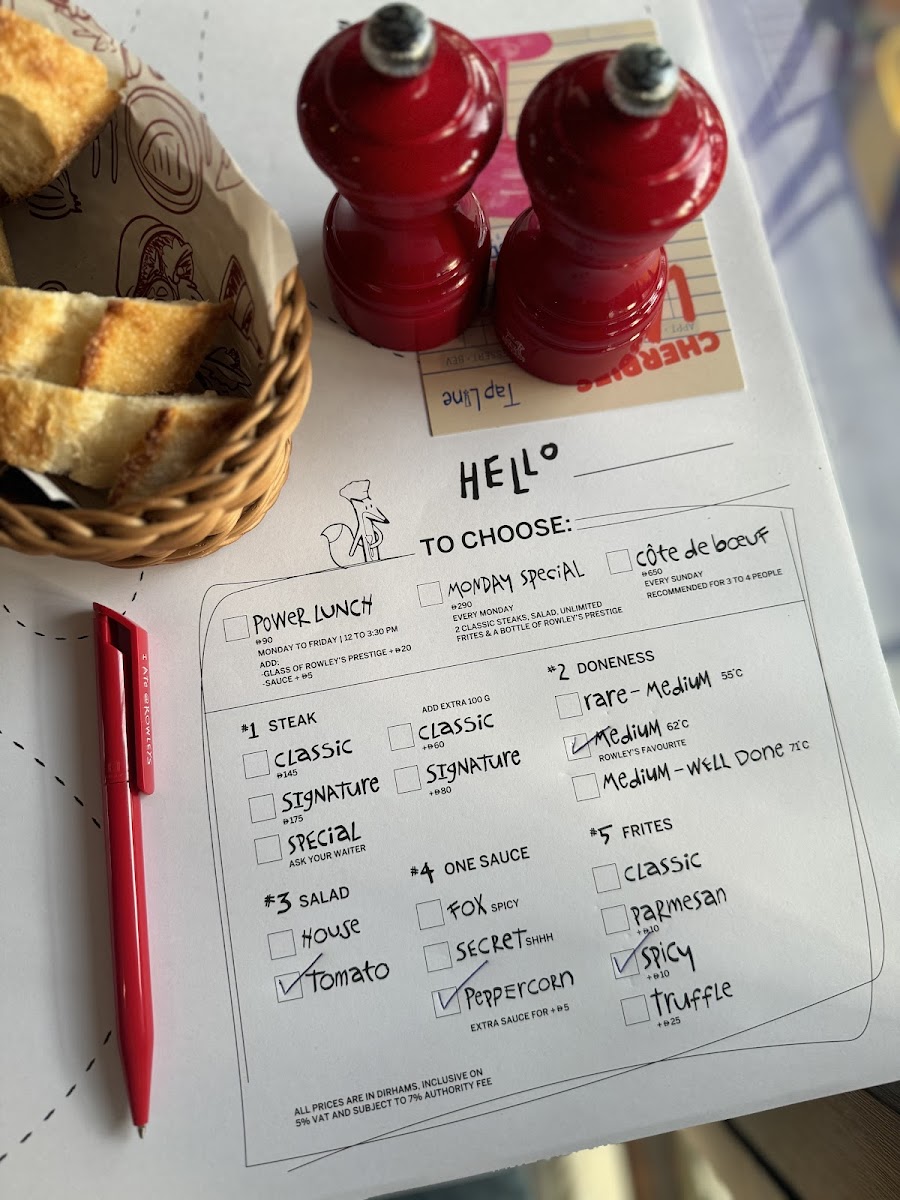 CHERBIES
APPT
SSERT - BEV
Tap Line
HELLO
TO CHOOSE:
POWER LUNCH
90
MONDAY TO FRIDAY | 12 TO 3:30 PM
ADD:
-GLASS OF ROWLEY'S PRESTIGE + 20
-SAUCE + 5
MONDAY SPECIAL
290
EVERY MONDAY
2 CLASSIC STEAKS, SALAD, UNLIMITED
FRITES & A BOTTLE OF ROWLEY'S PRESTIGE
CÔTE DE BŒUF
650
EVERY SUNDAY
RECOMMENDED FOR 3 TO 4 PEOPLE
#1 STEAK
CLASSIC
145
SIGNATURE
175
SPECIAL
ASK YOUR WAITER
ADD EXTRA 100 G
CLASSIC
+60
SIGNATURE
+80
#2 DONENESS
RARE-MEDIUM 55°C
MEDIUM 62°C
ROWLEY'S FAVOURITE
MEDIUM-WELL DONE 71°C
#3 SALAD
HOUSE
TOMATO
#4 ONE SAUCE
FOX SPICY
SECRET SHHH
PEPPERCORN
EXTRA SAUCE FOR + 5
#5 FRITES
CLASSIC
PARMESAN
+10
SPICY
+10
TRUFFLE
+25
ALL PRICES ARE IN DIRHAMS, INCLUSIVE ON
5% VAT AND SUBJECT TO 7% AUTHORITY FEE
I ATE @ROWLEYS